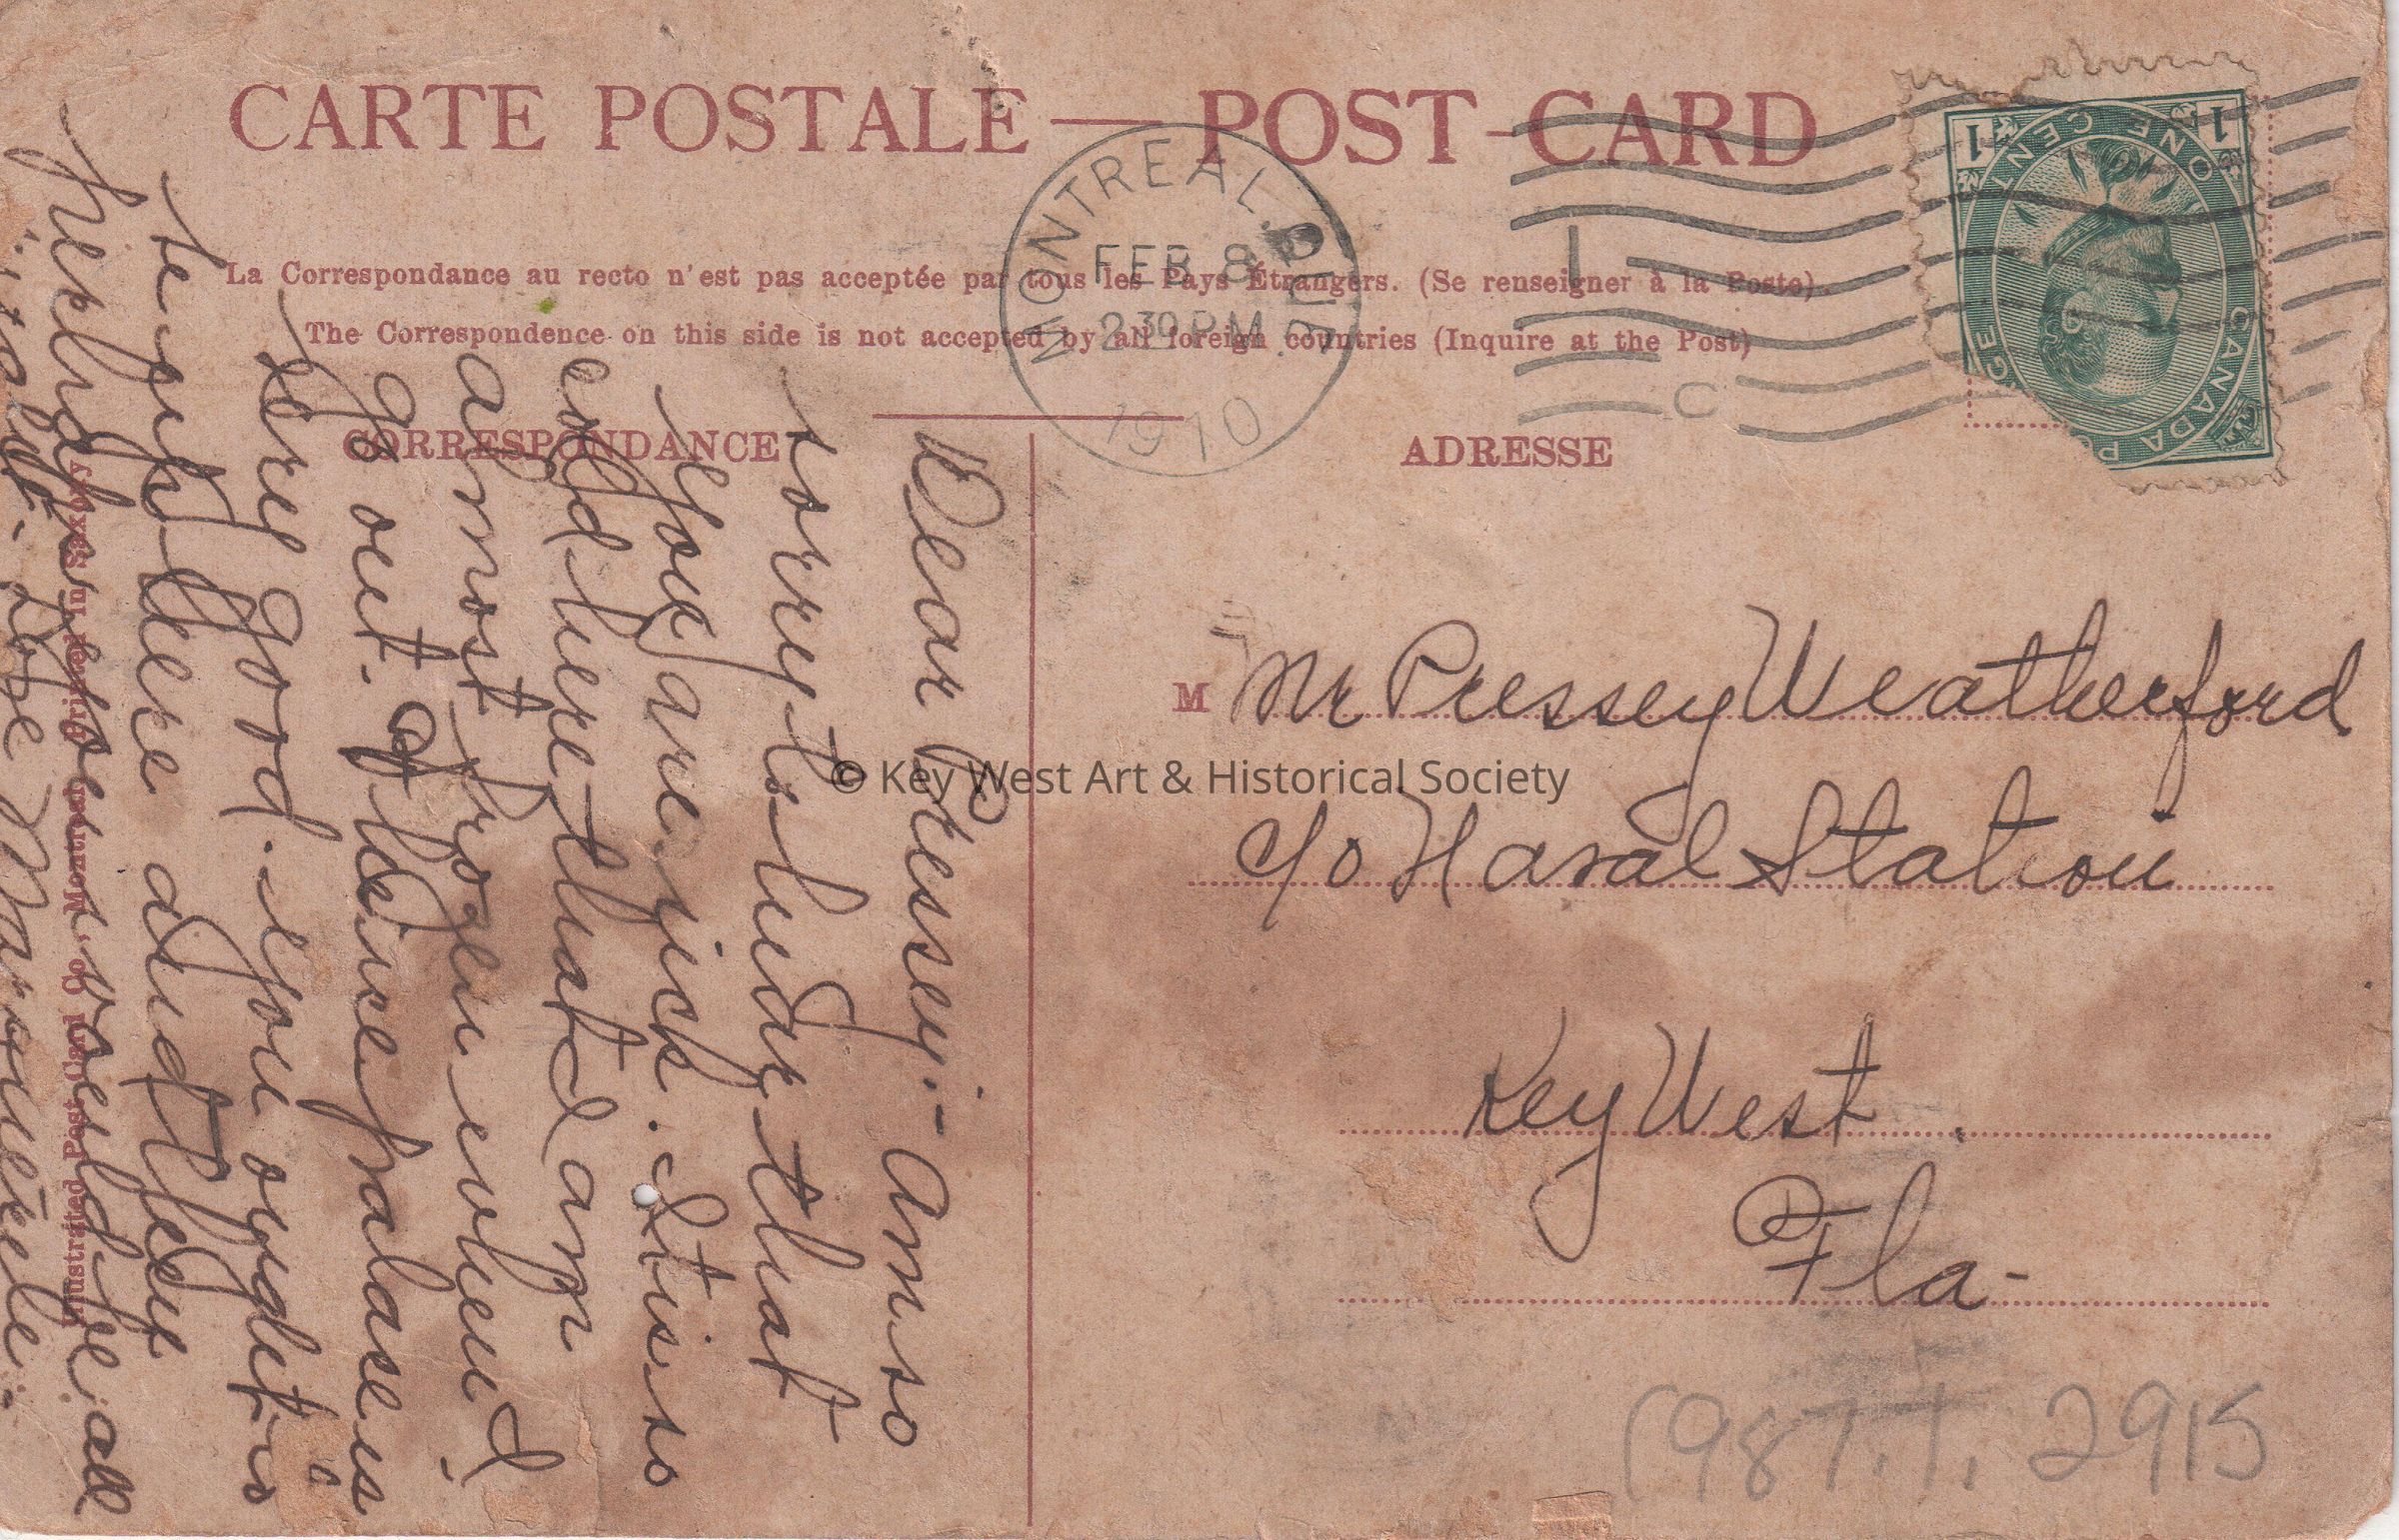 CARTE POSTALE — POST-CARD
La Correspondance au recto n'est pas acceptée par tous les Pays Étrangers. (Se renseigner à la Poste).
The Correspondence on this side is not accepted by all foreign countries (Inquire at the Post)
MONTREAL. QUE.
FEB 8
2 30 P.M.
1910
C
CANADA POSTAGE
ONE CENT
1 1
CORRESPONDANCE
ADRESSE
Dear Pressey:- Am so
sorry to hear that
you are sick. It is so
cold here that I am
almost frozen when I
go out. The ice palace is
very good. you ought to
be up here and get
your
would be all
right.
M Mr Pressey Weatherford
c/o Naval Station
Key West
Fla-
© Key West Art & Historical Society
Illustrated Post Card Co., Montreal Printed in Saxony
1987.1.2915